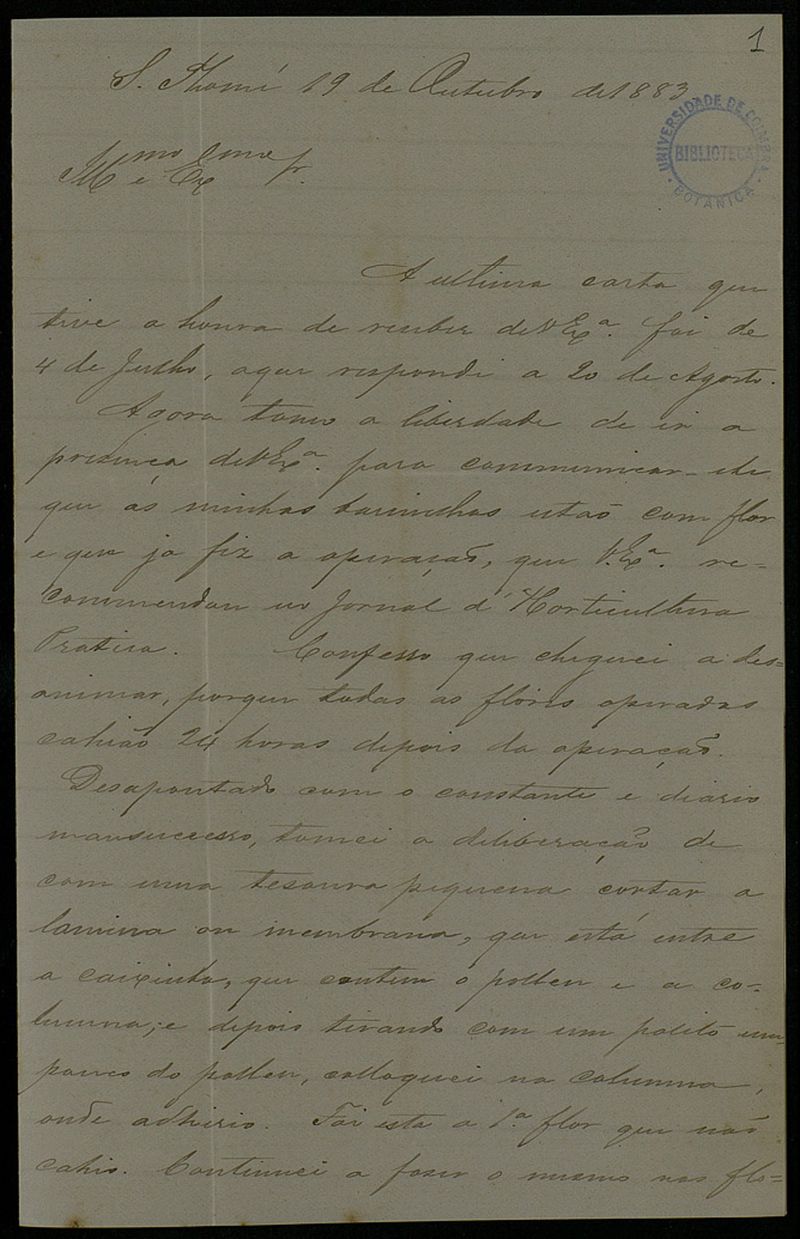 1
S. Thomé 19 de Outubro de 1883
UNIVERSIDADE DE COIMBRA
BIBLIOTECA
BOTANICA
Illmo e Exmo Sr.
A ultima carta que
tive a honra de receber de V Exª. foi de
4 de Julho, a que respondi a 20 de Agosto.
Agora tomo a liberdade de ir a
presença de V Exª. para communicar-lhe
que as minhas baunilhas estão com flor
e que ja fiz a operação, que V. Exª. re=
commendou no Jornal d'Horticultura
Pratica. Confesso que cheguei a des=
animar, porque todas as flores operadas
cahião 24 horas depois da operação.
Desapontado com o constante e diario
mausuccesso, tomei a deliberação de
com uma tesoura pequena cortar a
lamina ou membrana, que está entre
a caixinha, que contem o pollen e a co-
lumna; e depois tirando com um palito um
pouco do pollen, colloquei na columna,
onde adherio. Foi esta a 1ª flor que não
cahio. Continuei a faser o mesmo nas flo=